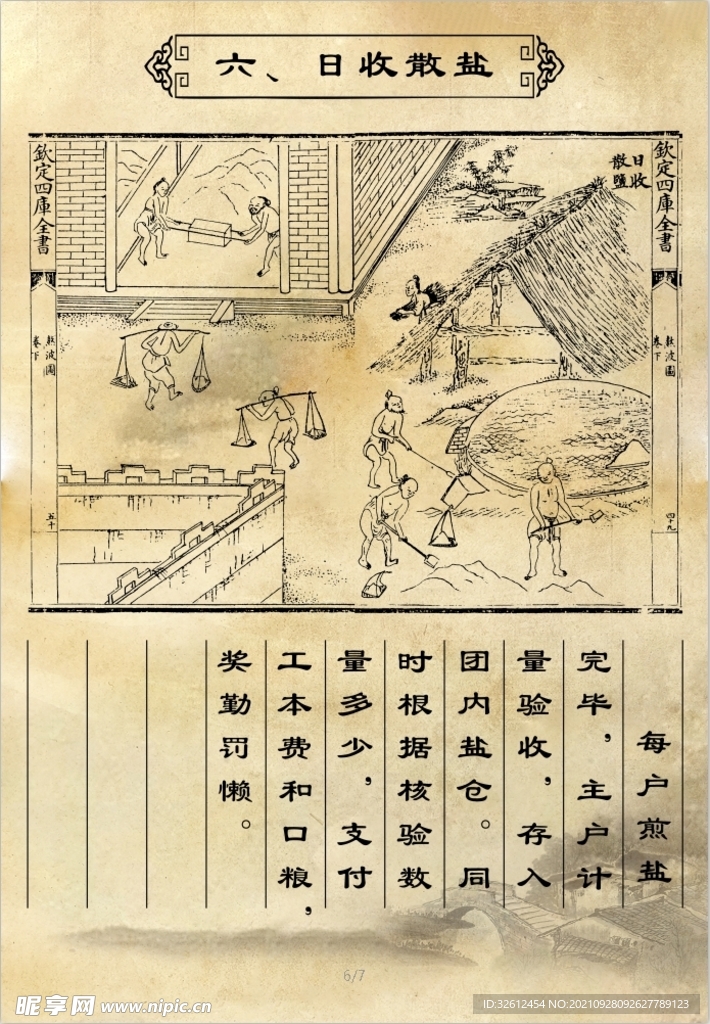 六、日收散盐
欽定四庫全書
日收
散鹽
欽定四庫全書
熬波圖
卷下
四十九
熬波圖
卷下
五十
每户煎盐
完毕，主户计
量验收，存入
团内盐仓。同
时根据核验数
量多少，支付
工本费和口粮，
奖勤罚懒。
6/7
昵享网 www.nipic.cn
ID:32612454 NO:20210928092627789123